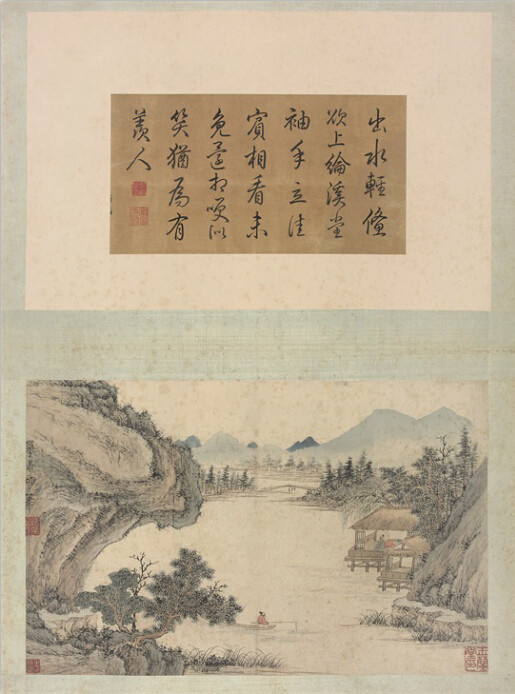 出水輕鯈
欲上綸溪堂
袖手立佳
賓相看未
免還相咲似
笑猶為有
羨人